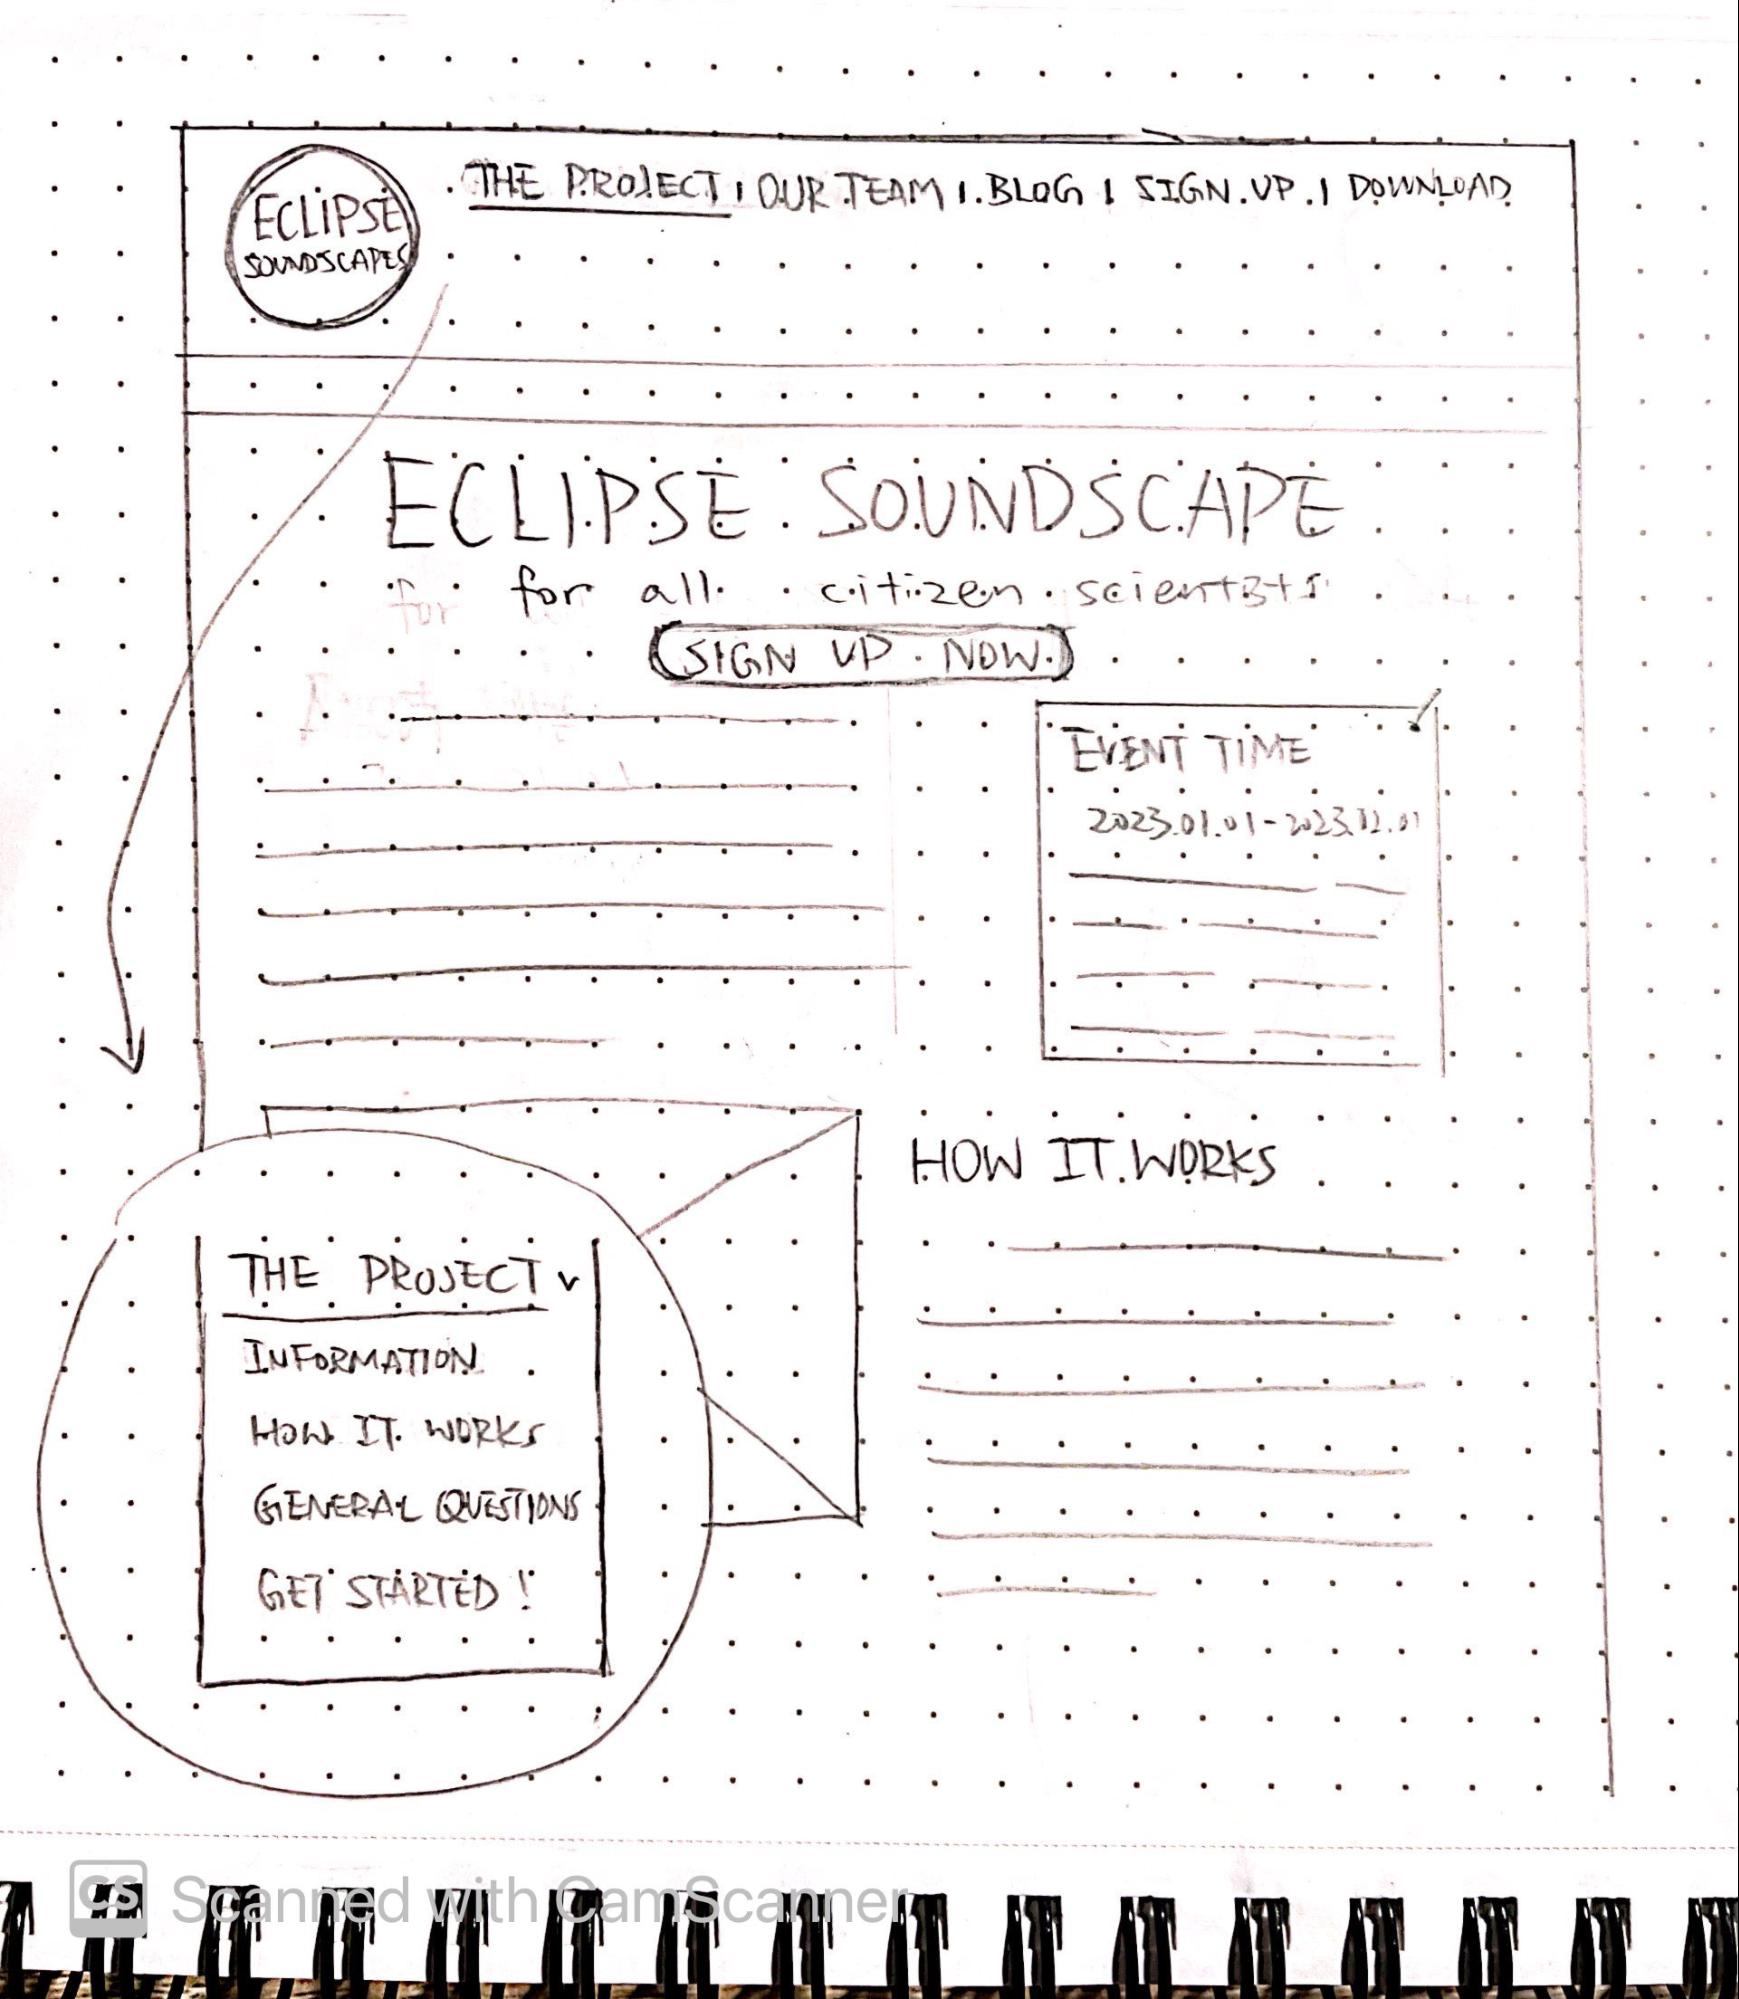 ECLIPSE
SOUNDSCAPES
THE PROJECT | OUR TEAM | BLOG | SIGN UP | DOWNLOAD
ECLIPSE SOUNDSCAPE
for
for all citizen scientists
SIGN UP NOW
EVENT TIME
2023.01.01-2023.12.01
HOW IT WORKS
THE PROJECT v
INFORMATION
HOW IT WORKS
GENERAL QUESTIONS
GET STARTED!
CS Scanned with CamScanner